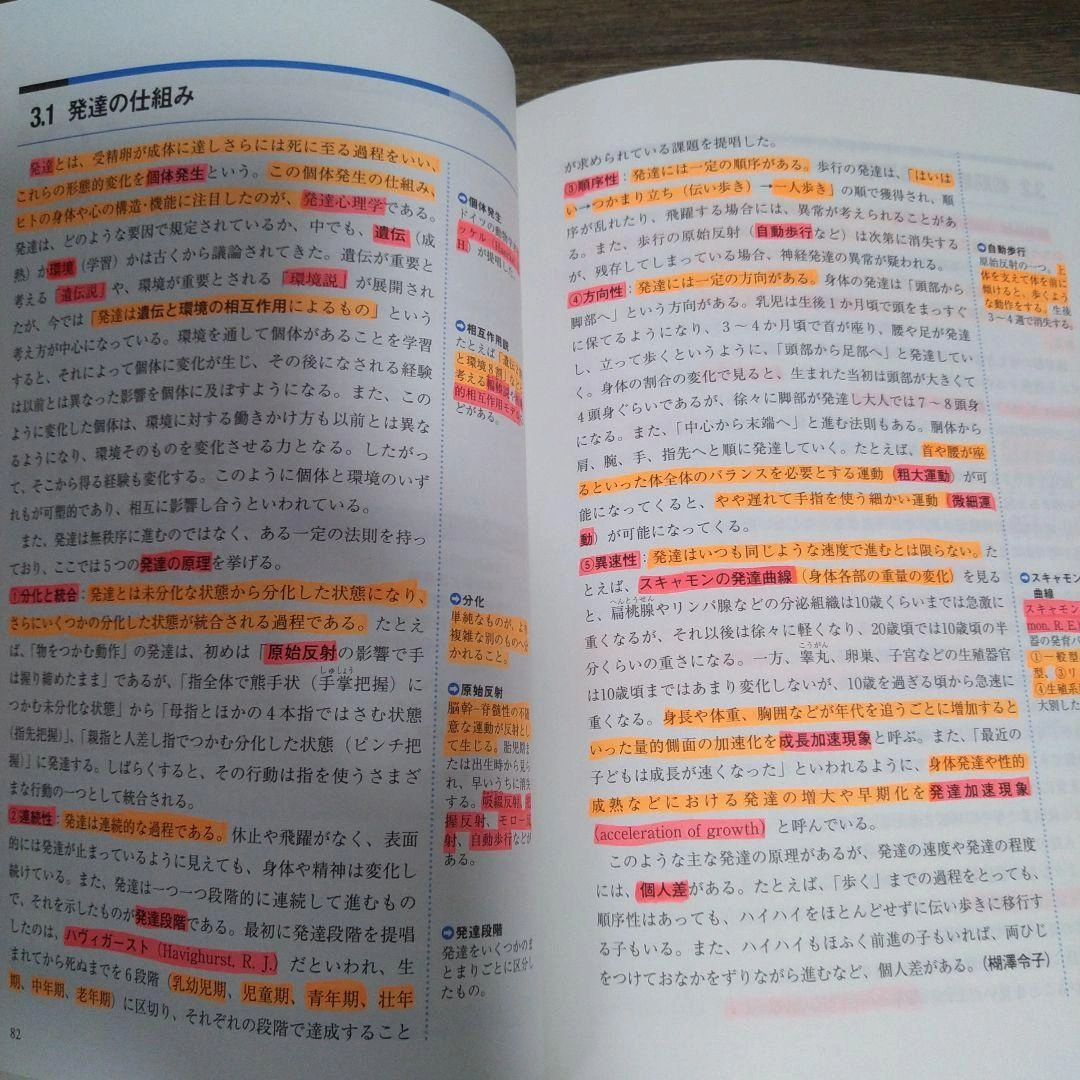 3.1 発達の仕組み
発達とは、受精卵が成体に達しさらには死に至る過程をいい、
これらの形態的変化を個体発生という。この個体発生の仕組み、
ヒトの身体や心の構造・機能に注目したのが、発達心理学である。
発達は、どのような要因で規定されているか、中でも、遺伝（成
熟）か環境（学習）かは古くから議論されてきた。遺伝が重要と
考える「遺伝説」や、環境が重要とされる「環境説」が展開され
たが、今では「発達は遺伝と環境の相互作用によるもの」という
考え方が中心になっている。環境を通して個体があることを学習
すると、それによって個体に変化が生じ、その後になされる経験
は以前とは異なった影響を個体に及ぼすようになる。また、この
ように変化した個体は、環境に対する働きかけ方も以前とは異な
るようになり、環境そのものを変化させる力となる。したがっ
て、そこから得る経験も変化する。このように個体と環境のいず
れもが可塑的であり、相互に影響し合うといわれている。
また、発達は無秩序に進むのではなく、ある一定の法則を持っ
ており、ここでは5つの発達の原理を挙げる。
①分化と統合：発達とは未分化な状態から分化した状態になり、
さらにいくつかの分化した状態が統合される過程である。たとえ
ば、「物をつかむ動作」の発達は、初めは「原始反射の影響で手
は握り締めたまま」であるが、「指全体で熊手状（手掌把握）に
しゅしょう
つかむ未分化な状態」から「母指とほかの4本指ではさむ状態
（指先把握）」、「親指と人差し指でつかむ分化した状態（ピンチ把
握）」に発達する。しばらくすると、その行動は指を使うさまざ
まな行動の一つとして統合される。
②連続性：発達は連続的な過程である。休止や飛躍がなく、表面
的には発達が止まっているように見えても、身体や精神は変化し
続けている。また、発達は一つ一つ段階的に連続して進むもの
で、それを示したものが発達段階である。最初に発達段階を提唱
したのは、ハヴィガースト（Havighurst, R. J.）だといわれ、生
まれてから死ぬまでを6段階（乳幼児期、児童期、青年期、壮年
期、中年期、老年期）に区切り、それぞれの段階で達成すること
82
➔個体発生
ドイツの動物学
ッケル
H.）が提唱した
➔相互作用説
たとえば「遺伝
と環境8割」など
考える
的相互作用モデ
どがある。
➔分化
単純なものが、
複雑な別のものへ
かれること。
➔原始反射
脳幹−脊髄性の不
意な運動が反射とし
て生じる。胎児期ま
たは出生時から見ら
れ、早いうちに消失
する。吸綴反射、
握反射、モロー
射、自動歩行などが
ある。
➔発達段階
発達をいくつかのま
とまりごとに区分し
たもの。
が求められている課題を提唱した。
③順序性：発達には一定の順序がある。歩行の発達は、「はいは
い→つかまり立ち（伝い歩き）→一人歩き」の順で獲得され、順
序が乱れたり、飛躍する場合には、異常が考えられることがあ
る。また、歩行の原始反射（自動歩行など）は次第に消失する
が、残存してしまっている場合、神経発達の異常が疑われる。
④方向性：発達には一定の方向がある。身体の発達は「頭部から
脚部へ」という方向がある。乳児は生後1か月頃で頭をまっすぐ
に保てるようになり、3〜4か月頃で首が座り、腰や足が発達
し、立って歩くというように、「頭部から足部へ」と発達してい
く。身体の割合の変化で見ると、生まれた当初は頭部が大きくて
4頭身ぐらいであるが、徐々に脚部が発達し大人では7〜8頭身
になる。また、「中心から末端へ」と進む法則もある。胴体から
肩、腕、手、指先へと順に発達していく。たとえば、首や腰が座
るといった体全体のバランスを必要とする運動（粗大運動）が可
能になってくると、やや遅れて手指を使う細かい運動（微細運
動）が可能になってくる。
⑤異速性：発達はいつも同じような速度で進むとは限らない。た
とえば、スキャモンの発達曲線（身体各部の重量の変化）を見る
へんとうせん
と、扁桃腺やリンパ腺などの分泌組織は10歳くらいまでは急激に
重くなるが、それ以後は徐々に軽くなり、20歳頃では10歳頃の半
こうがん
分くらいの重さになる。一方、睾丸、卵巣、子宮などの生殖器官
は10歳頃まではあまり変化しないが、10歳を過ぎる頃から急速に
重くなる。身長や体重、胸囲などが年代を追うごとに増加すると
いった量的側面の加速化を成長加速現象と呼ぶ。また、「最近の
子どもは成長が速くなった」といわれるように、身体発達や性的
成熟などにおける発達の増大や早期化を発達加速現象
（acceleration of growth）と呼んでいる。
このような主な発達の原理があるが、発達の速度や発達の程度
には、個人差がある。たとえば、「歩く」までの過程をとっても、
順序性はあっても、ハイハイをほとんどせずに伝い歩きに移行す
る子もいる。また、ハイハイもほふく前進の子もいれば、両ひじ
をつけておなかをずりながら進むなど、個人差がある。（楜澤令子）
➔自動歩行
原始反射の一つ。上
体を支えて体を前に
傾けると、歩くよう
な動作をする。生後
3〜4週で消失する。
➔スキャモン
曲線
スキャモン
mon, R. E.
器の発育パ
①一般型
型、③リ
④生殖系
大別した